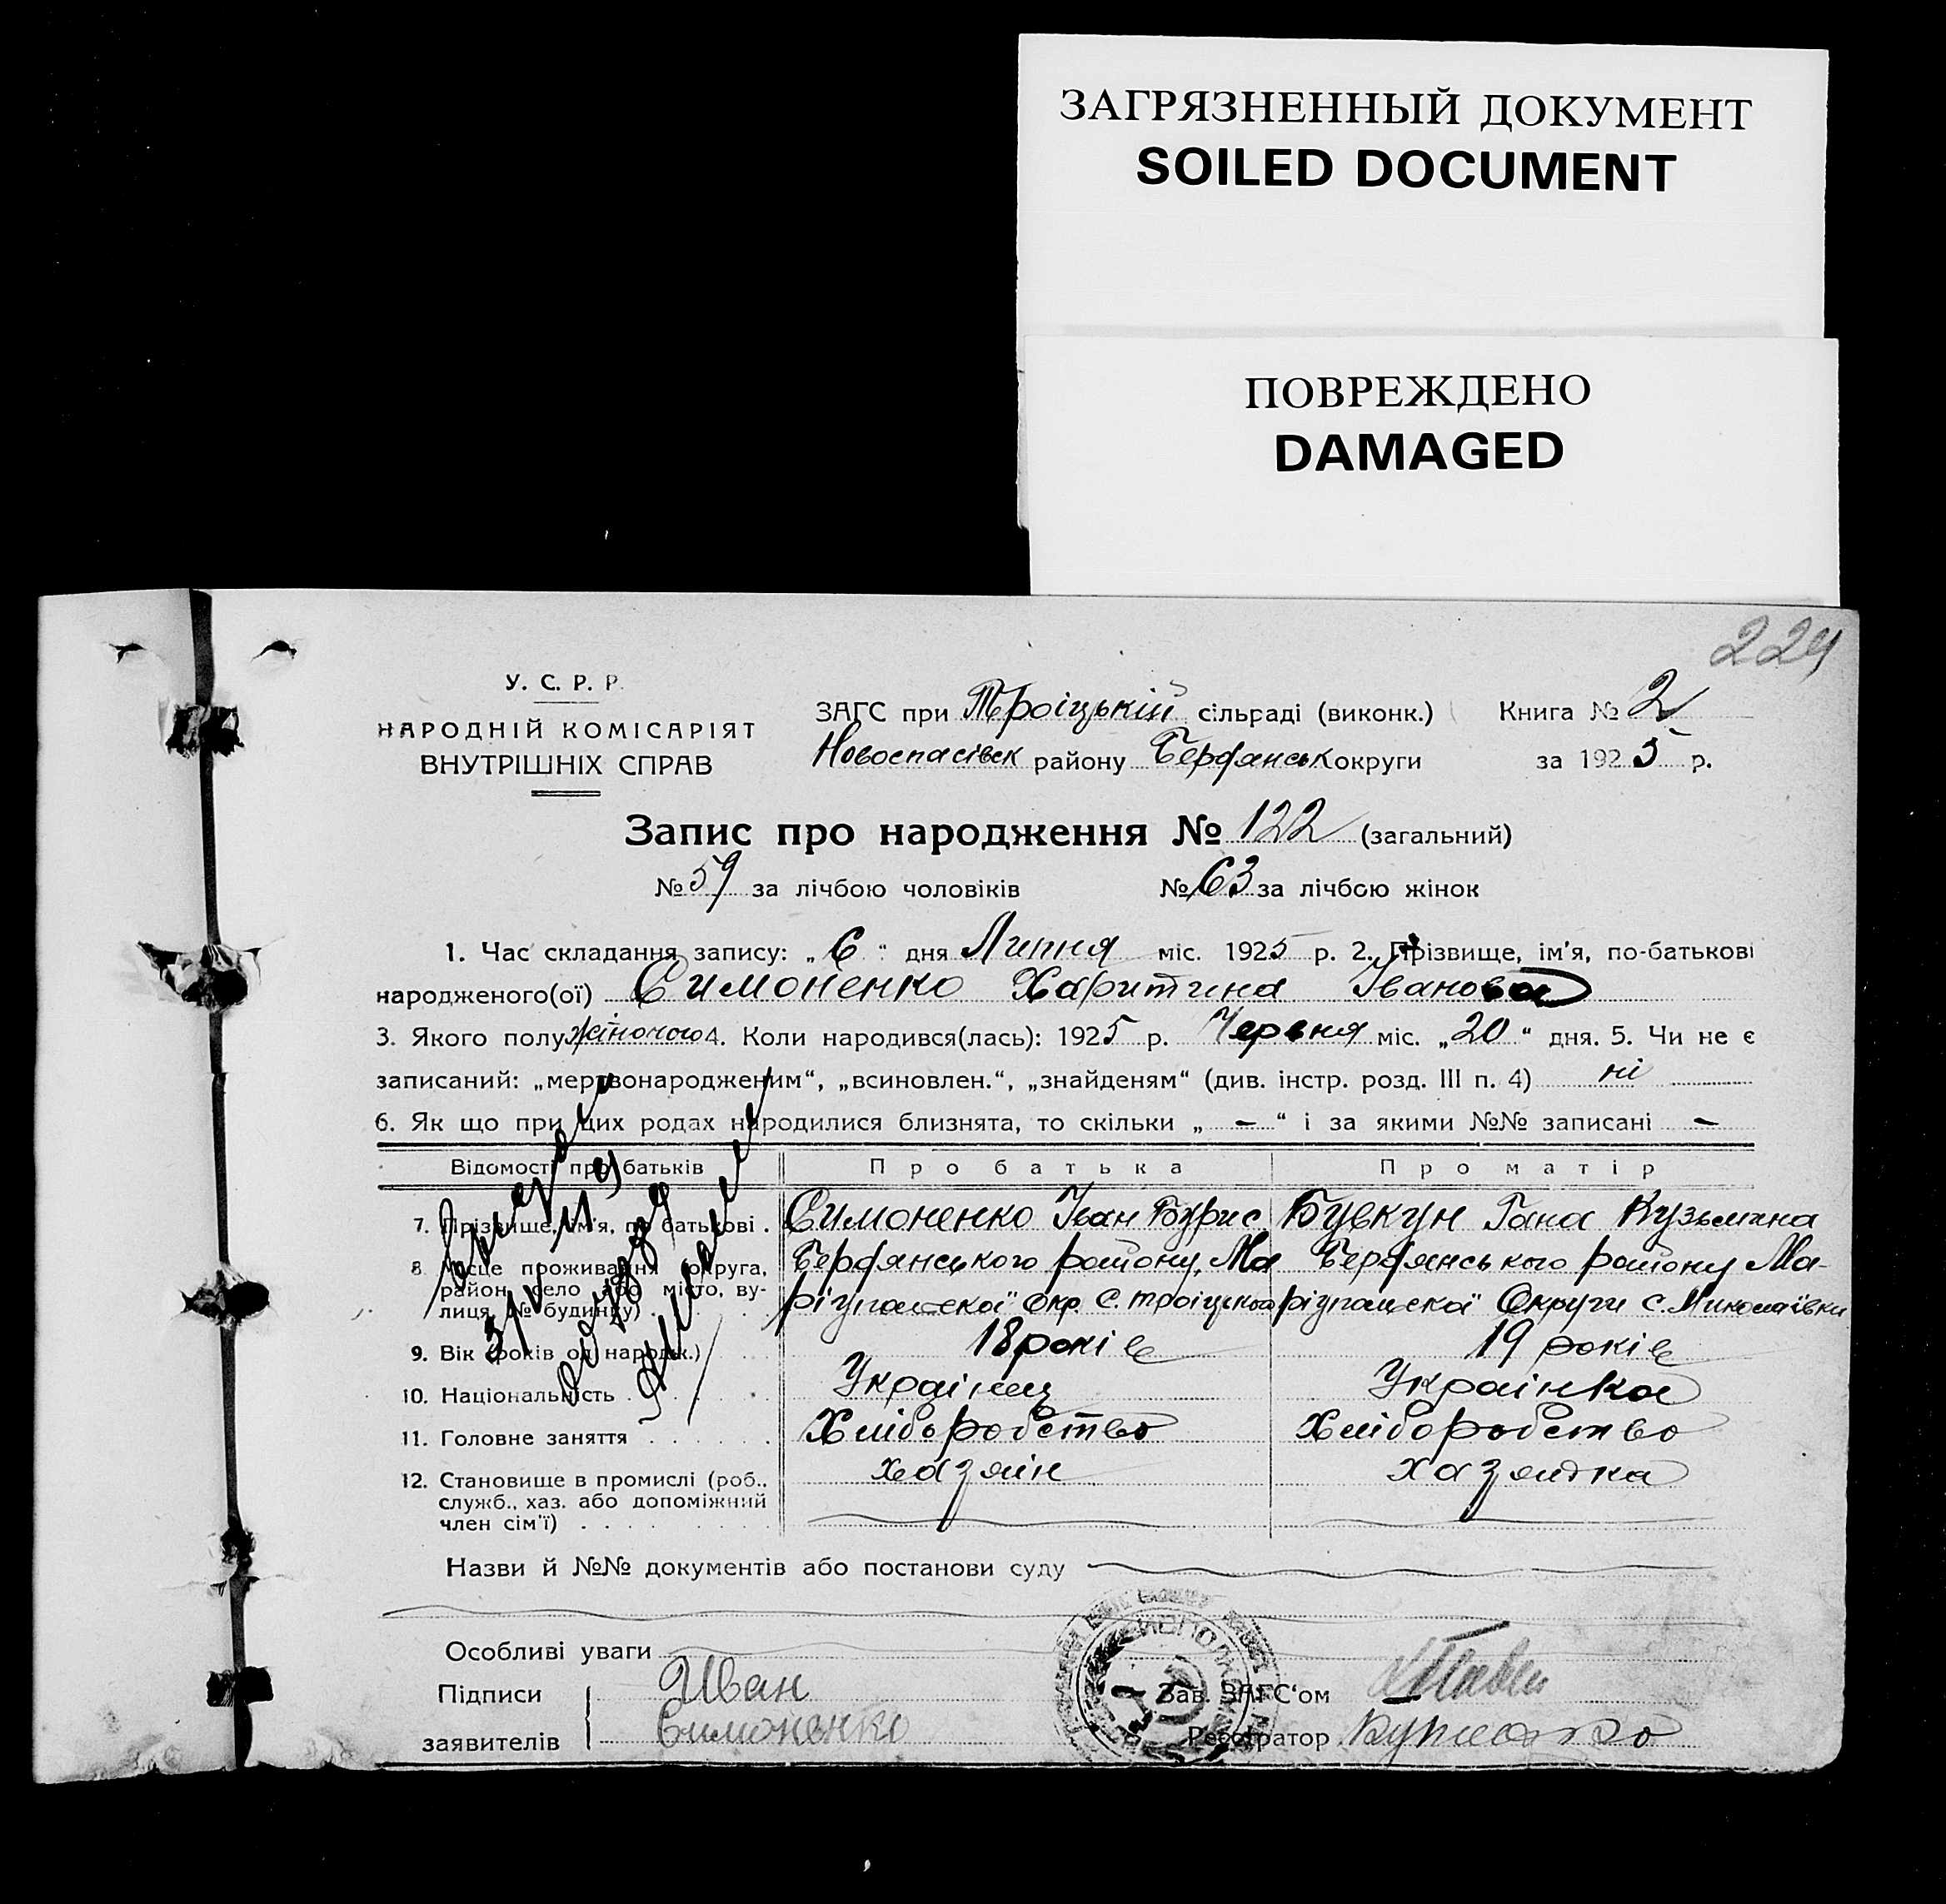 ЗАГРЯЗНЕННЫЙ ДОКУМЕНТ
SOILED DOCUMENT
ПОВРЕЖДЕНО
DAMAGED
224
У. С. Р. Р.
НАРОДНІЙ КОМІСАРІЯТ
ВНУТРІШНІХ СПРАВ
ЗАГС при Троіцькій сільраді (виконк.) Книга № 2
Новоспасівск району Бердянськ округи за 1925 р.
Запис про народження № 122 (загальний)
№ 59 за лічбою чоловіків № 63 за лічбою жінок
1. Час складання запису: „6“ дня Липня міс. 1925 р. 2. Прізвище, ім'я, по-батькові
народженого(ої) Симоненко Харитина Іванова
3. Якого полу жіночого 4. Коли народився(лась): 1925 р. Червня міс. „20“ дня. 5. Чи не є
записаний: „мертвонародженим“, „всиновлен.“, „знайденям“ (див. інстр. розд. III п. 4) ні
6. Як що при цих родах народилися близнята, то скільки „ — “ і за якими №№ записані —
Відомості про батьків Про батька Про матір
7. Прізвище, ім'я, по батькові . Симоненко Іван Борис Бувкун Гана Кузьмина
8. Місце проживання (округа, Бердянського району, Ма Бердянського району Ма-
район, село або місто, ву- ріупольскої Окр. с. Троіцьког ріупольскої Округи с. Миколаївки
лиця, № будинку) .
9. Вік (років од народж.) 18 років 19 років
10. Національність . Украінец Украінка
11. Головне заняття . . . . . . Хліборобство Хліборобство
12. Становище в промислі (роб., хазяін хазяйка
служб., хаз. або допоміжний
член сім'ї) . . . .
Назви й №№ документів або постанови суду
Особливі уваги
Підписи Иван Зав. ЗАГС'ом
заявителів Симоненко Реєстратор